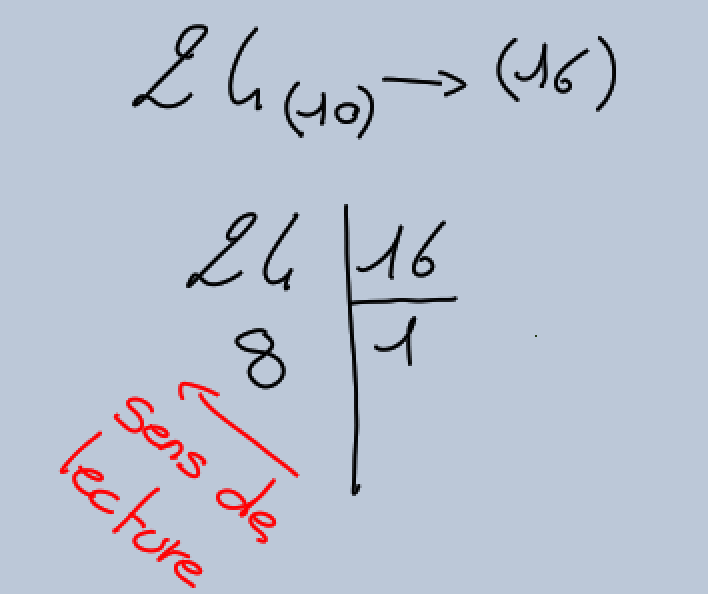 24(10) → (16)
24 16
8 1
sens de
lecture